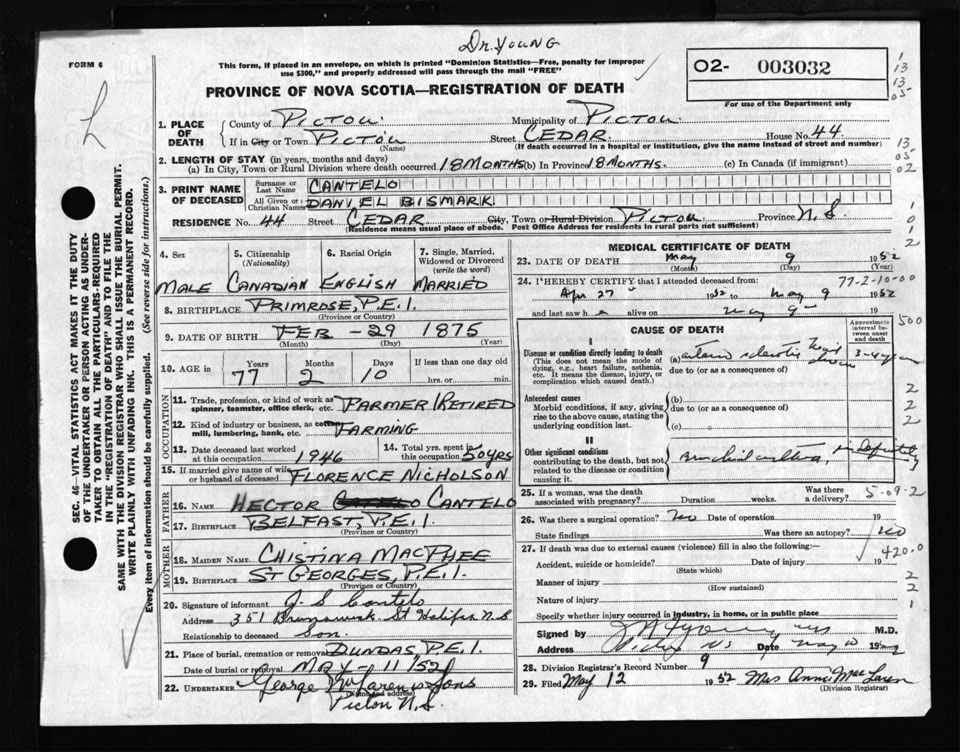 Dr. Young
FORM 6
This form, if placed in an envelope, on which is printed "Dominion Statistics—Free, penalty for improper
use $300," and properly addressed will pass through the mail "FREE"
PROVINCE OF NOVA SCOTIA—REGISTRATION OF DEATH
02- 003032
For use of the Department only
1
13
13
05-
L
1. PLACE OF DEATH
County of PICTOU. Municipality of PICTOU.
If in City or Town PICTOU Street CEDAR. House No. 44
(Name) (If death occurred in a hospital or institution, give the name instead of street and number)
13
05-
02
2. LENGTH OF STAY (in years, months and days)
(a) In City, Town or Rural Division where death occurred 18 MONTHS (b) In Province 18 MONTHS. (c) In Canada (if immigrant)
3. PRINT NAME OF DECEASED
Surname or Last Name CANTELO
All Given or Christian Names DANIEL BISMARK
RESIDENCE No. 44 Street CEDAR City, Town or Rural Division PICTOU. Province N.S.
(Residence means usual place of abode. Post Office Address for residents in rural parts not sufficient)
1
0
1
2
SEC. 46—VITAL STATISTICS ACT MAKES IT THE DUTY
OF THE UNDERTAKER OR PERSON ACTING AS UNDER-
TAKER TO OBTAIN ALL THE PARTICULARS REQUIRED
IN THE "REGISTRATION OF DEATH" AND TO FILE THE
SAME WITH THE DIVISION REGISTRAR WHO SHALL ISSUE THE BURIAL PERMIT.
WRITE PLAINLY WITH UNFADING INK. THIS IS A PERMANENT RECORD.
Every item of information should be carefully supplied. (See reverse side for instructions.)
4. Sex
MALE
5. Citizenship
(Nationality)
CANADIAN
6. Racial Origin
ENGLISH
7. Single, Married,
Widowed or Divorced
(write the word)
MARRIED
8. BIRTHPLACE PRIMROSE, P.E.I.
(Province or Country)
9. DATE OF BIRTH FEB - 29 1875
(Month) (Day) (Year)
10. AGE in
Years Months Days If less than one day old
77 2 10 hrs. or min.
OCCUPATION
11. Trade, profession, or kind of work as
spinner, teamster, office clerk, etc. FARMER (RETIRED
12. Kind of industry or business, as cotton
mill, lumbering, bank, etc. FARMING
13. Date deceased last worked
at this occupation 1946
14. Total yrs. spent in
this occupation 50 YRS
15. If married give name of wife
or husband of deceased FLORENCE NICHOLSON
FATHER
16. NAME HECTOR CANTELO
17. BIRTHPLACE BELFAST, P.E.I.
(Province or Country)
MOTHER
18. MAIDEN NAME. CHISTINA MACPHEE
19. BIRTHPLACE ST GEORGES, P.E.I.
(Province or Country)
20. Signature of informant J. S. Cantelo
Address 351 Brunswick St Halifax N.S
Relationship to deceased Son.
21. Place of burial, cremation or removal DUNDAS, P.E.I.
Date of burial or removal MAY - 11/52
22. UNDERTAKER George & Sons
(Name and address)
Pictou N.S.
MEDICAL CERTIFICATE OF DEATH
23. DATE OF DEATH May 9 1952
(Month) (Day) (Year)
24. I HEREBY CERTIFY that I attended deceased from: 77-2-10-00
Apr 27 1952 to May 9 1952
and last saw h alive on May 9 19
CAUSE OF DEATH
Approximate
interval be-
tween onset
and death
500
I
Disease or condition directly leading to death
(This does not mean the mode of
dying, e.g., heart failure, asthenia,
etc. It means the disease, injury, or
complication which caused death.)
(a) arterio sclerotic heart disease 3-4 years
due to (or as a consequence of)
Antecedent causes
Morbid conditions, if any, giving
rise to the above cause, stating the
underlying condition last.
(b)
due to (or as a consequence of)
(c)
2
2
2
II
Other significant conditions
contributing to the death, but not
related to the disease or condition
causing it.
Bronchial asthma, indefinitely
25. If a woman, was the death
associated with pregnancy? Duration weeks. Was there
a delivery?
5-09-2
26. Was there a surgical operation? no Date of operation 19
State findings Was there an autopsy? no
27. If death was due to external causes (violence) fill in also the following:-
420.0
Accident, suicide or homicide? Date of injury 19
(State which)
Manner of injury
(How sustained)
Nature of injury
Specify whether injury occurred in industry, in home, or in public place
2
2
1
Signed by J. Young M.D.
Address Pictou NS Date May 10 1952
28. Division Registrar's Record Number 9
29. Filed May 12 1952 Mrs Annie MacLaren
(Division Registrar)